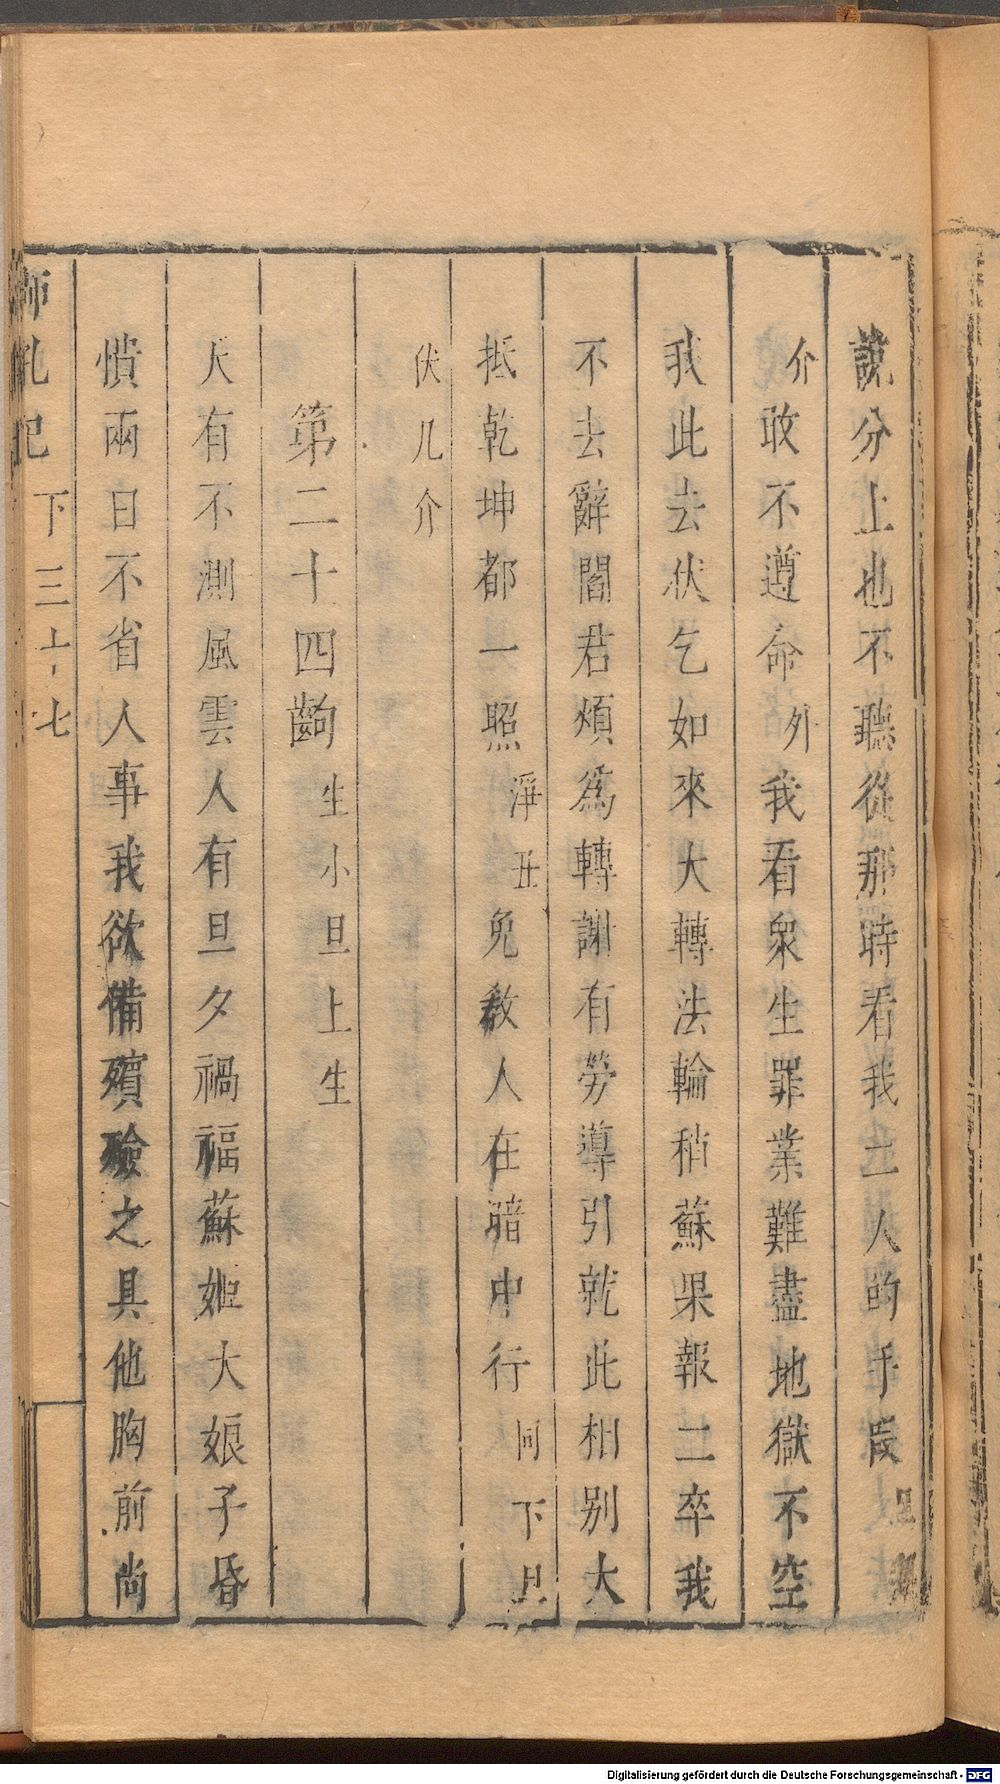 說分上也不聽從那時看我一人的手段
介敢不遵命外我看衆生罪業難盡地獄不空
我此去伏乞如來大轉法輪稍蘇果報二卒我
不去辭閻君煩爲轉謝有勞導引就此相別大
抵乾坤都一照淨丑免教人在暗中行同下旦
伏几介
第二十四齣生小旦上生
天有不測風雲人有旦夕禍福蘇姬大娘子昏
憒兩日不省人事我欲備殯殮之具他胸前尚
獅吼記下三十七
Digitalisierung gefördert durch die Deutsche Forschungsgemeinschaft - DFG